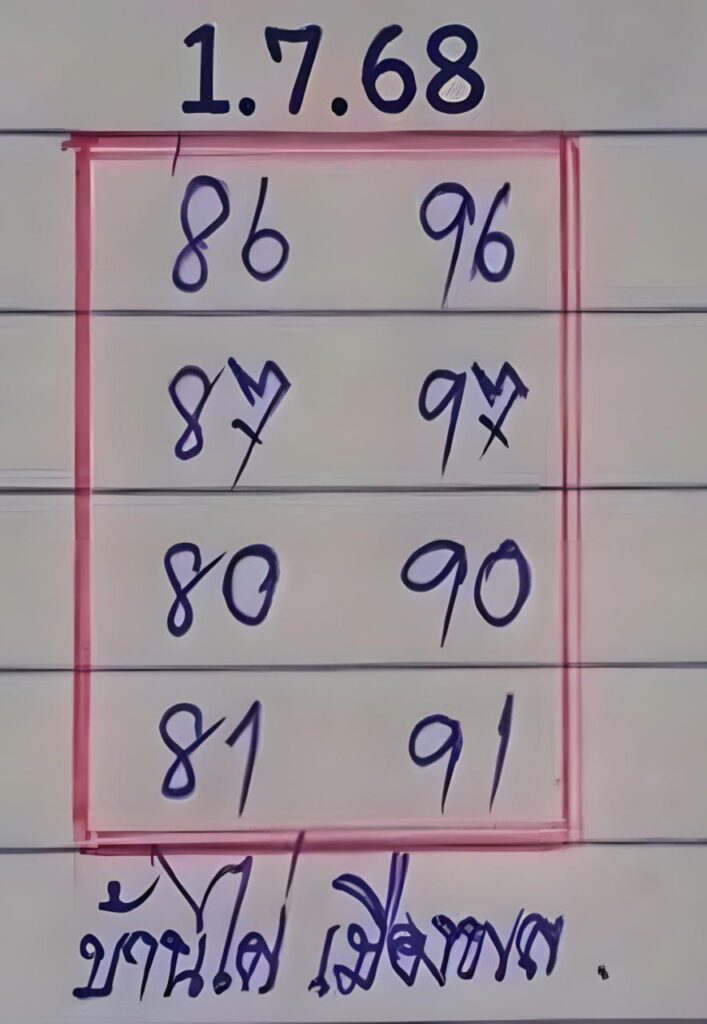 1.7.68
86 96
87 97
80 90
81 91
บ้านไผ่ เมืองพล